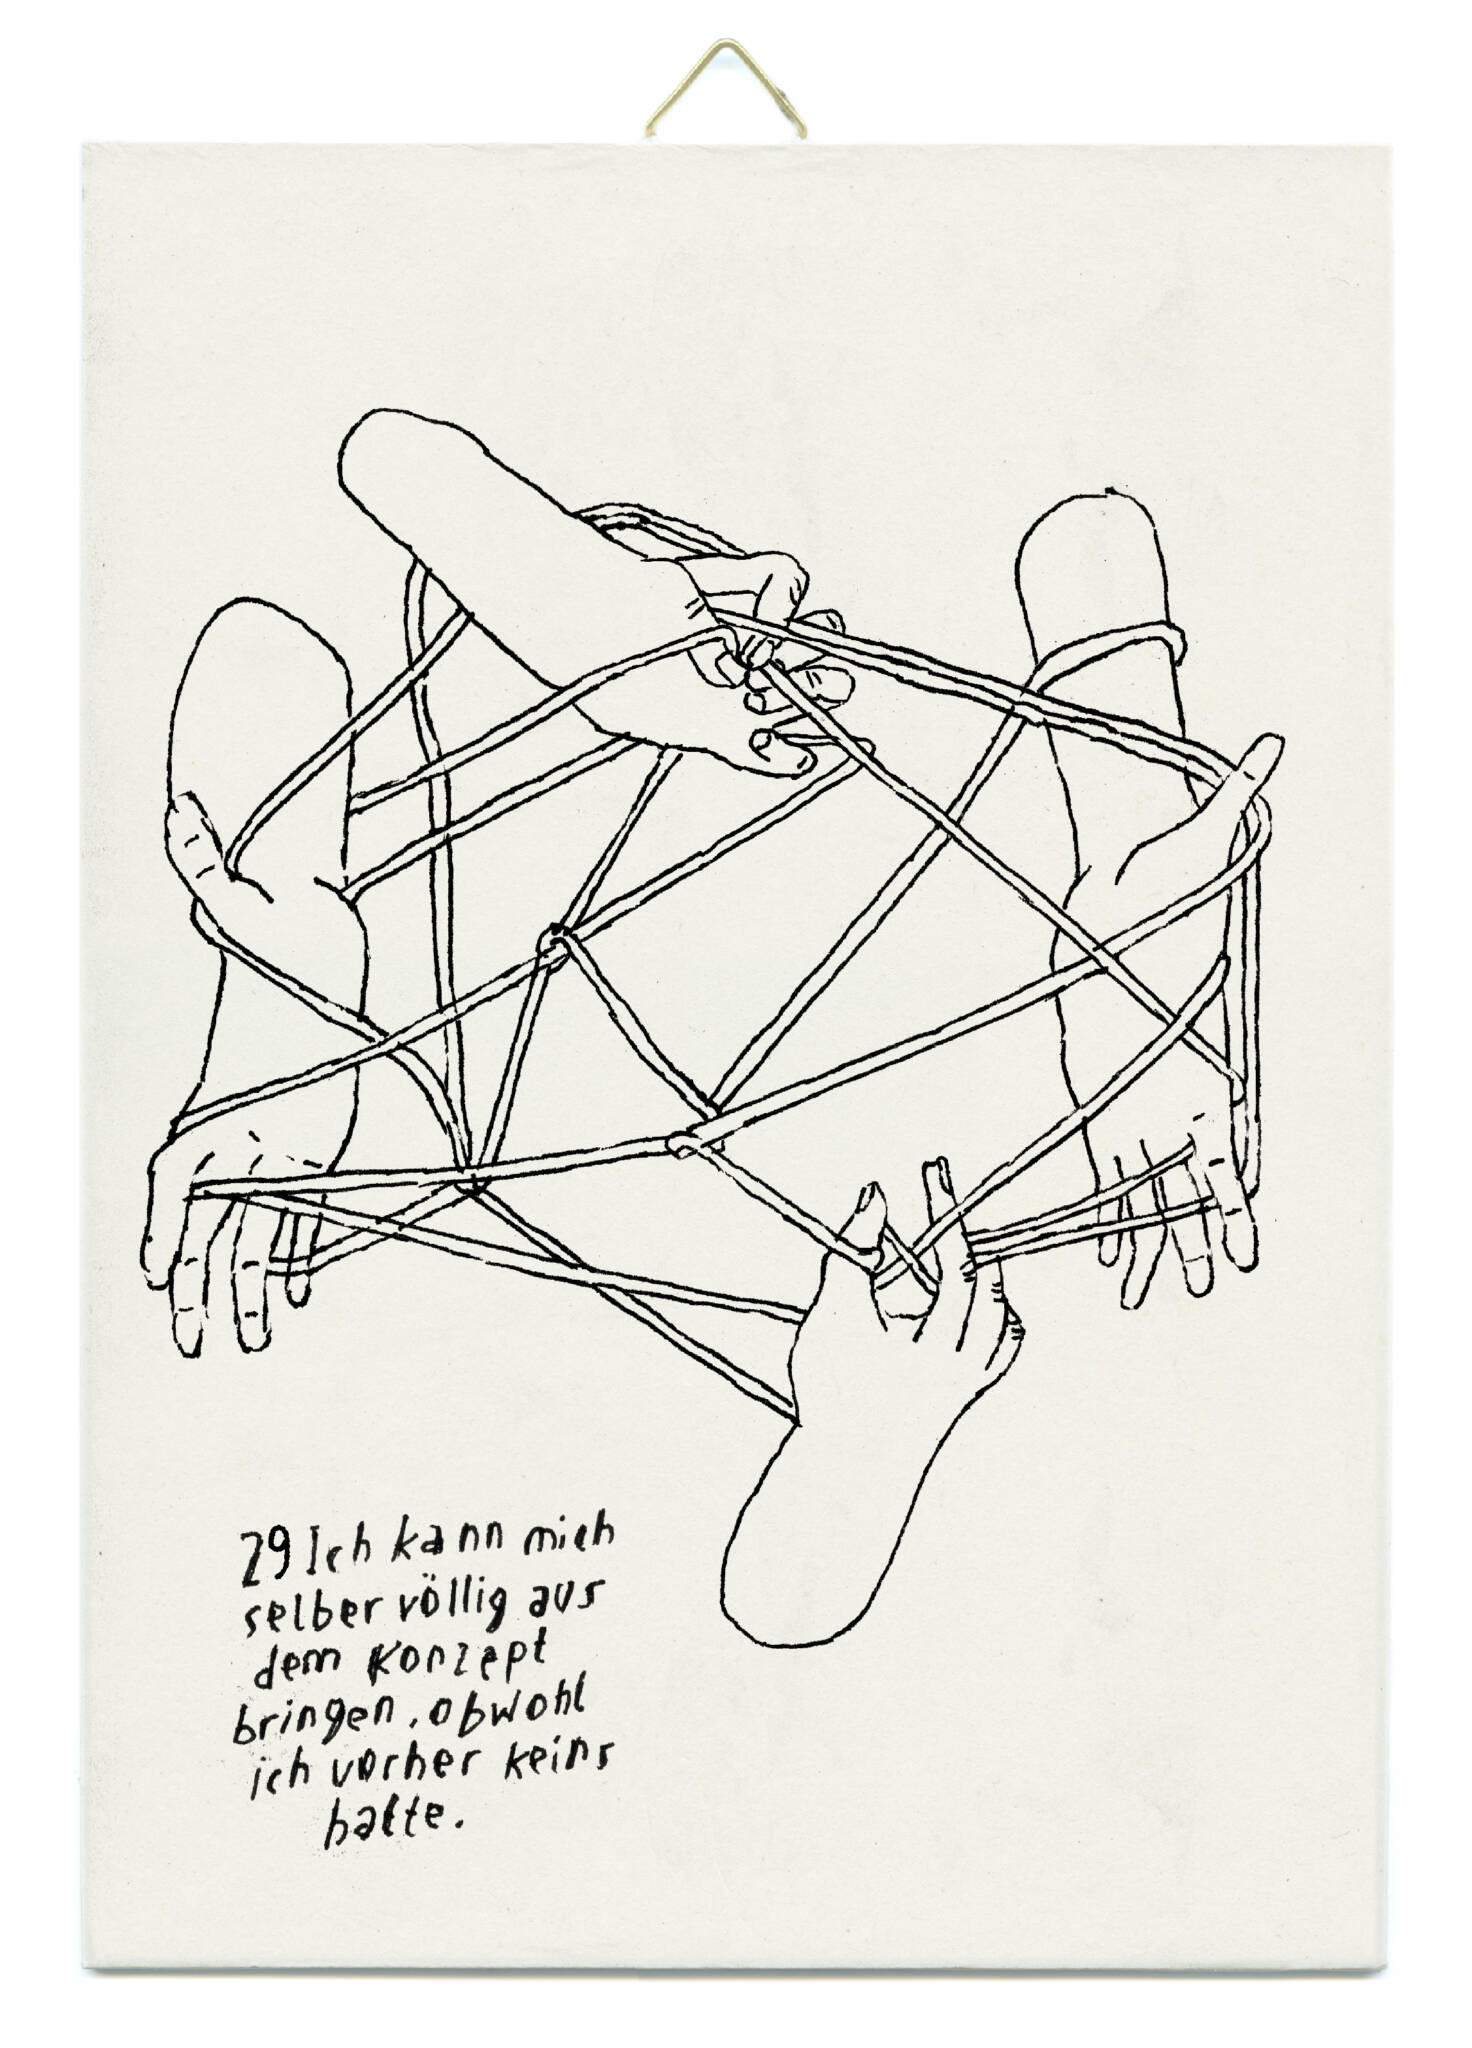 29 Ich kann mich
selber völlig aus
dem Konzept
bringen, obwohl
ich vorher keins
hatte.